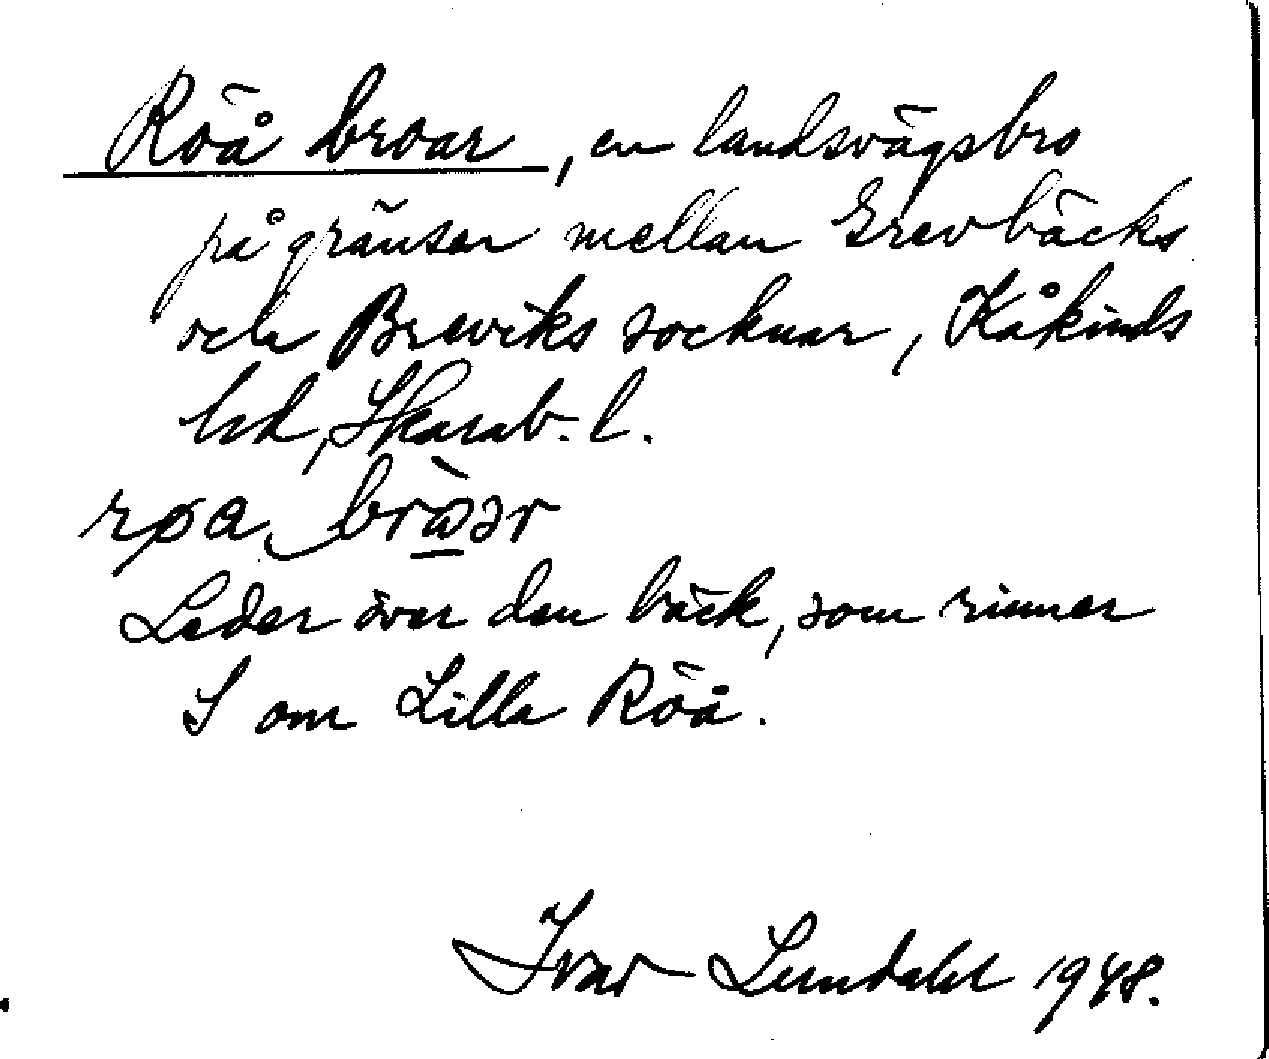 Röå broar, en landsvägsbro
på gränsen mellan Grevbäcks
och Breviks socknar, Kåkinds
hd, Skarab. l.
røa‿brò̠ər
Leder över den bäck, som rinner
S om Lilla Röå.
Ivar Lundahl 1948.